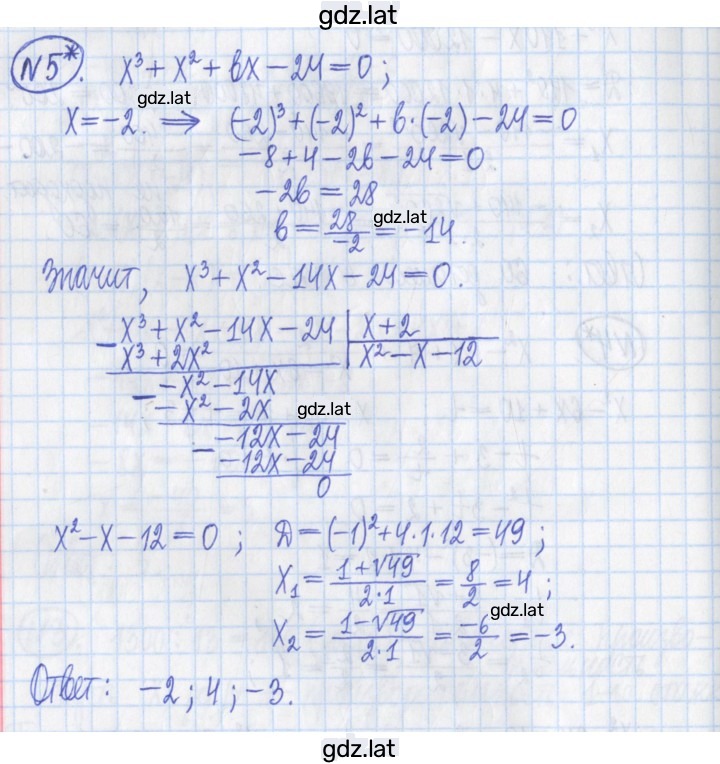 gdz.lat
N5*. x³ + x² + bx − 24 = 0 ;
gdz.lat
x = −2. ⟹ (−2)³ + (−2)² + b·(−2) − 24 = 0
−8 + 4 − 2b − 24 = 0
−2b = 28
b = 28/−2 = −14.
gdz.lat
Значит, x³ + x² − 14x − 24 = 0.
− x³ + x² − 14x − 24 | x + 2
x³ + 2x² | x² − x − 12
− −x² − 14x
−x² − 2x
gdz.lat
− −12x − 24
−12x − 24
0
x² − x − 12 = 0 ; D = (−1)² + 4·1·12 = 49 ;
x₁ = (1 + √49)/(2·1) = 8/2 = 4 ;
gdz.lat
x₂ = (1 − √49)/(2·1) = −6/2 = −3.
Ответ: −2 ; 4 ; −3.
gdz.lat